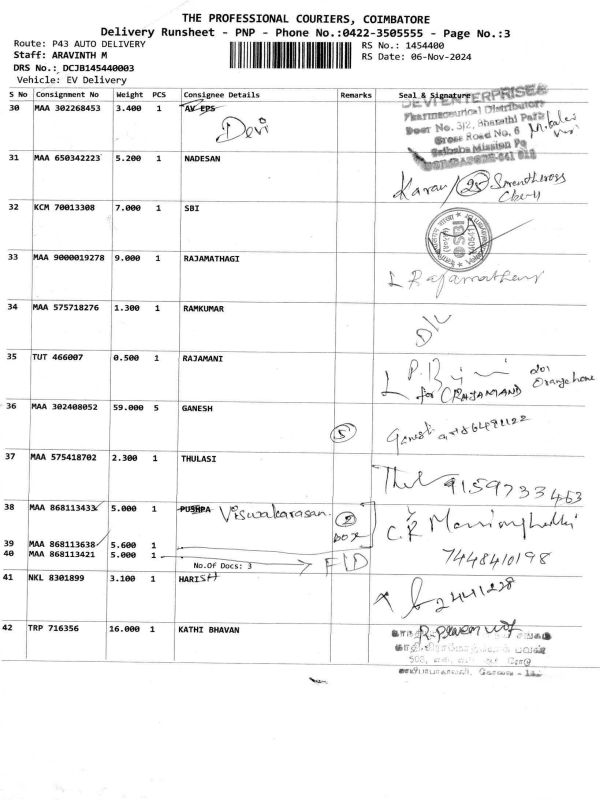 THE PROFESSIONAL COURIERS, COIMBATORE
Delivery Runsheet - PNP - Phone No.:0422-3505555 - Page No.:3
Route: P43 AUTO DELIVERY
Staff: ARAVINTH M
DRS No.: DCJB145440003
Vehicle: EV Delivery
RS No.: 1454400
RS Date: 06-Nov-2024
S No Consignment No Weight PCS Consignee Details Remarks Seal & Signature
30 MAA 302268453 3.400 1 AV EPS
Devi
DEVI ENTERPRISES
Pharmaceutical Distributors
Door No. 3/2, Bharathi Park
Cross Road No. 6
Saibaba Mission Po
31 MAA 650342223 5.200 1 NADESAN
Karan/
32 KCM 70013308 7.000 1 SBI
33 MAA 9000019278 9.000 1 RAJAMATHAGI
L Rajamathagi
34 MAA 575718276 1.300 1 RAMKUMAR
D/L
35 TUT 466007 0.500 1 RAJAMANI
for
36 MAA 302408052 59.000 5 GANESH
5
Ganesh
37 MAA 575418702 2.300 1 THULASI
Thul 9159733463
38 MAA 868113433 5.000 1 PUSHPA Viswakarasan
2
BOX
39 MAA 868113638 5.600 1
40 MAA 868113421 5.000 1
No.Of Docs: 3
F/D
7448410198
41 NKL 8301899 3.100 1 HARISH
2441228
42 TRP 716356 16.000 1 KATHI BHAVAN